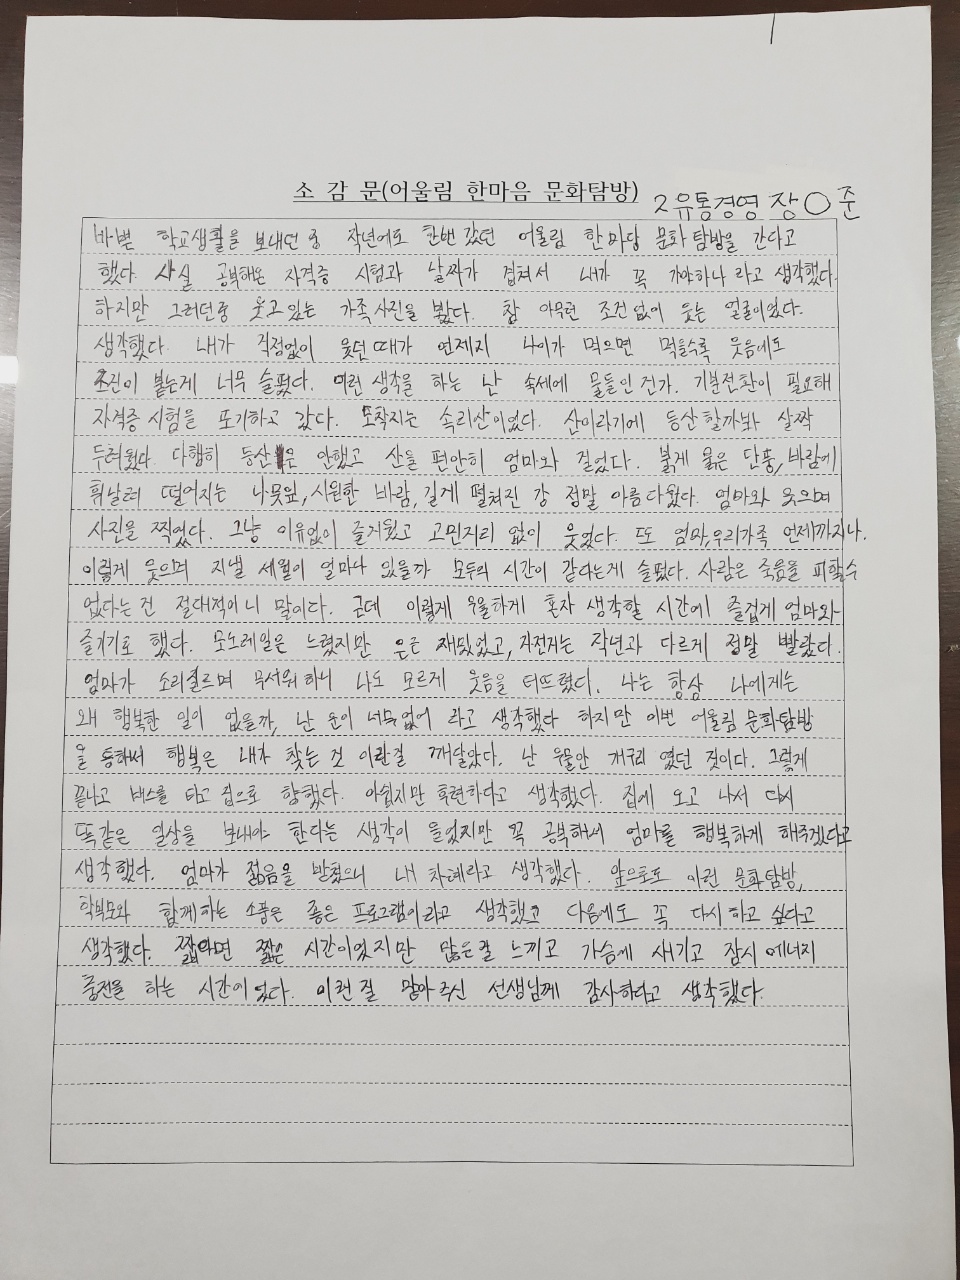 소 감 문(어울림 한마음 문화탐방) 2유통경영 장○준
바쁜 학교생활을 보내던 중 작년에도 한번 갔던 어울림 한마당 문화탐방을 간다고
했다. 사실 공부해온 자격증 시험과 날짜가 겹쳐서 내가 꼭 가야하나 라고 생각했다.
하지만 그러던중 웃고있는 가족사진을 봤다. 참 아무런 조건없이 웃는 얼굴이었다.
생각했다. 내가 걱정없이 웃던때가 언제지 나이가 먹으면 먹을수록 웃음에도
조건이 붙는게 너무 슬펐다. 이런 생각을 하는 난 속세에 물들인건가. 기분전환이 필요해
자격증시험을 포기하고 갔다. 도착지는 속리산이었다. 산이라기에 등산할까봐 살짝
두려웠다. 다행히 등산은 안했고 산을 편안히 엄마와 걸었다. 붉게 물은 단풍, 바람에
휘날려 떨어지는 나뭇잎, 시원한 바람, 길게 펼쳐진 강 정말 아름다웠다. 엄마와 웃으며
사진을 찍었다. 그냥 이유없이 즐거웠고 고민거리 없이 웃었다. 또 엄마, 우리가족 언제까지나
이렇게 웃으며 지낼 세월이 얼마나 있을까 모두의 시간이 같다는게 슬펐다. 사람은 죽음을 피할수
없다는건 절대적이니 말이다. 근데 이렇게 우울하게 혼자 생각할 시간에 즐겁게 엄마와
즐기기로 했다. 모노레일은 느렸지만 은근 재밌었고, 자전거는 작년과 다르게 정말 빨랐다.
엄마가 소리질르며 무서워하니 나도 모르게 웃음을 터뜨렸다. 나는 항상 나에게는
왜 행복한 일이 없을까, 난 운이 너무없어 라고 생각했다 하지만 이번 어울림 문화탐방
을 통해서 행복은 내가 찾는 것 이란걸 깨달았다. 난 우물안 개구리 였던 것이다. 그렇게
끝나고 버스를 타고 집으로 향했다. 아쉽지만 후련하다고 생각했다. 집에 오고 나서 다시
똑같은 일상을 보내야 한다는 생각이 들었지만 꼭 공부해서 엄마를 행복하게 해주겠다고
생각했다. 엄마가 젊음을 받쳤으니 내 차례라고 생각했다. 앞으로도 이런 문화탐방,
학부모와 함께하는 소풍은 좋은 프로그램이라고 생각했고 다음에도 꼭 다시하고 싶다고
생각했다. 짧다면 짧은 시간이었지만 많은걸 느끼고 가슴에 새기고 잠시 에너지
충전을 하는 시간이었다. 이런걸 맡아주신 선생님께 감사하다고 생각했다.